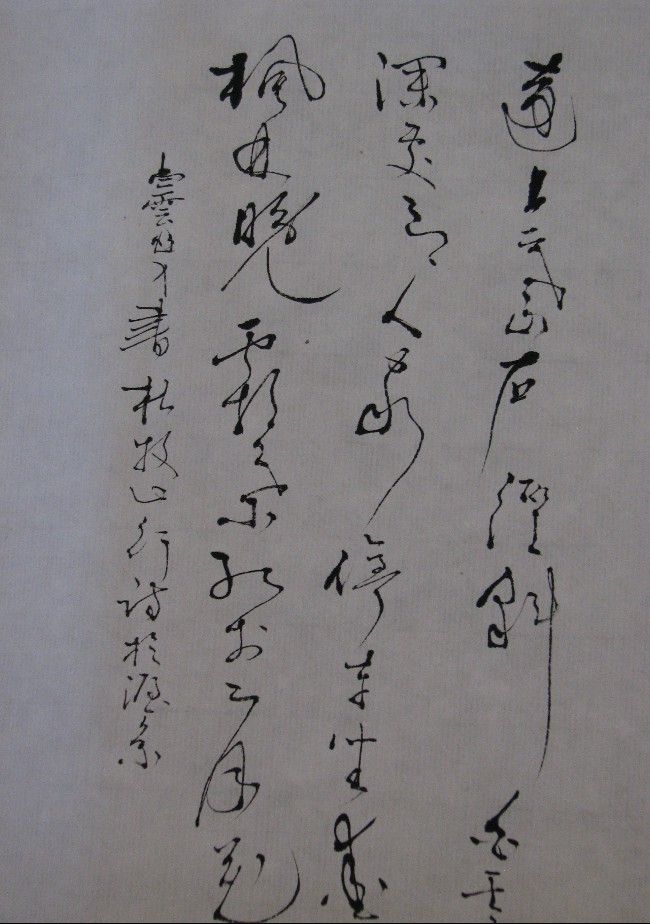 遠上寒山石徑斜白雲
深處有人家停車坐愛
楓林晚霜葉紅於二月花
書杜牧山行詩於